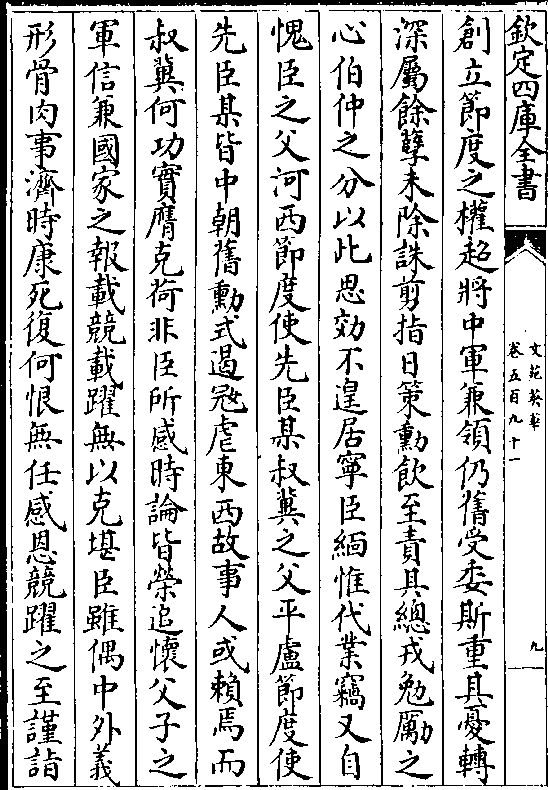 欽定四庫全書
文苑英華
卷五百九十一
九
創立節度之權超將中軍兼領仍舊受委斯重其憂轉
深屬餘孽未除誅剪指日策勳飲至責其總戎勉勵之
心伯仲之分以此思効不遑居寧臣緬惟代業竊又自
愧臣之父河西節度使先臣某叔冀之父平盧節度使
先臣某皆中朝舊勳式遏冦虐東西故事人或賴焉而
叔冀何功實膺克荷非臣所感時論皆榮追懷父子之
軍信兼國家之報載競載躍無以克堪臣雖偶中外義
形骨肉事濟時康死復何恨無任感恩競躍之至謹詣